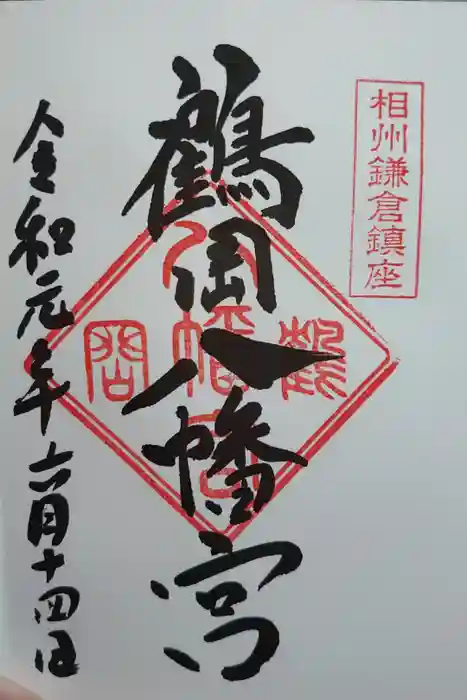 相州鎌倉鎮座
鶴岡八幡宮
令和元年六月十四日